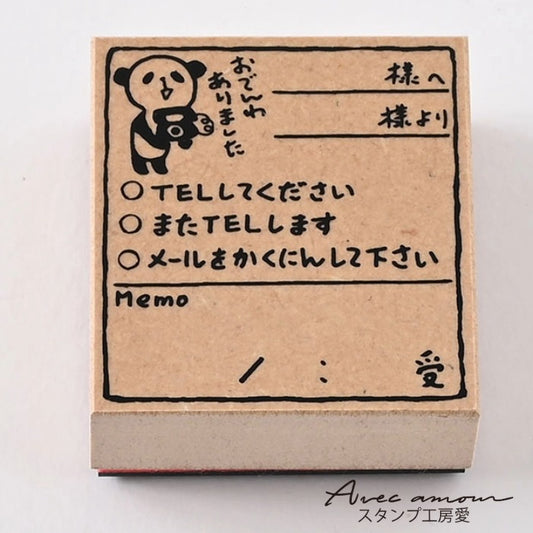 おでんわ
ありました
様へ
様より
○TELしてください
○またTELします
○メールをかくにんして下さい
Memo
/ : 受
Avec amour
スタンプ工房愛